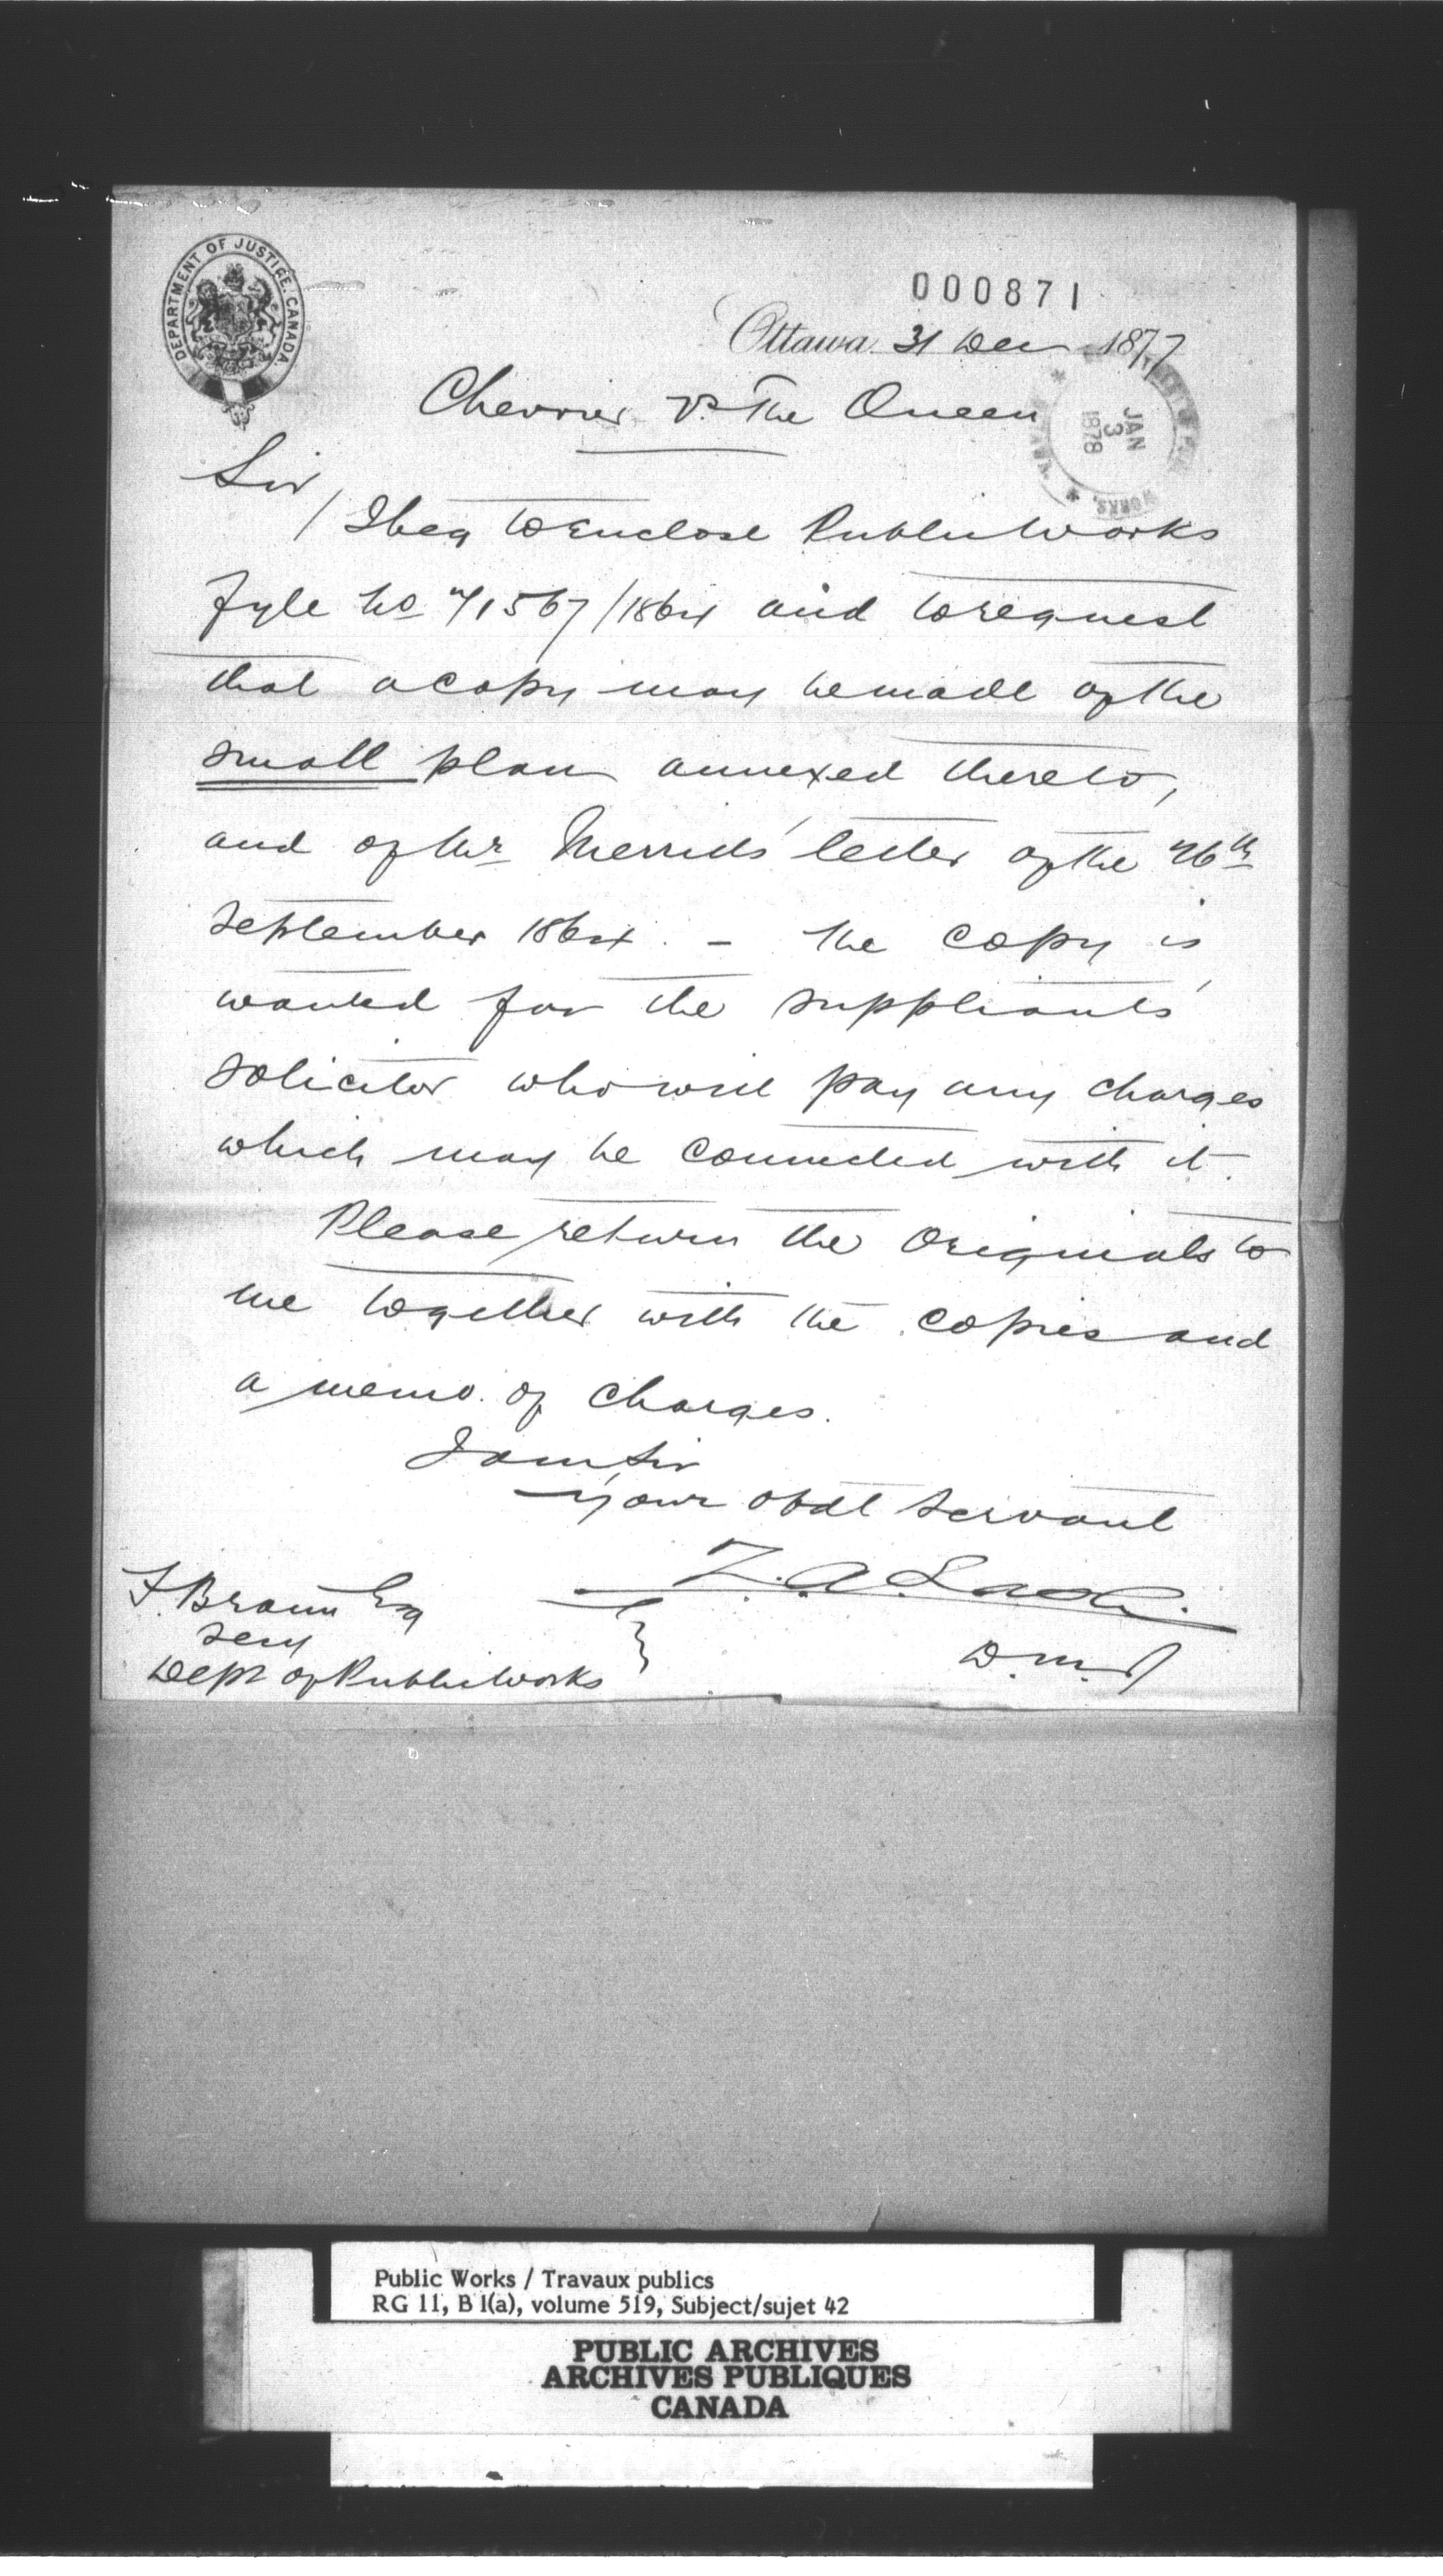 DEPARTMENT OF JUSTICE, CANADA.
000871
Ottawa 31 Dec 1877
JAN 3 1878
WORKS,
Chevrier vs. The Queen
Sir,
I beg to enclose Public Works
Fyle No 71567/1864 and to request
that a copy may be made of the
small plan annexed thereto,
and of Mr Merrill's letter of the 26th
September 1864. - The copy is
wanted for the suppliant's
solicitor who will pay any charges
which may be connected with it.
Please return the originals to
me together with the copies and
a memo. of charges.
I am Sir
Your obdt servant
Z. A. Lash.
D.M.J
F. Braun Esq
Secy
Dept of Public Works
Public Works / Travaux publics
RG 11, B 1(a), volume 519, Subject/sujet 42
PUBLIC ARCHIVES
ARCHIVES PUBLIQUES
CANADA